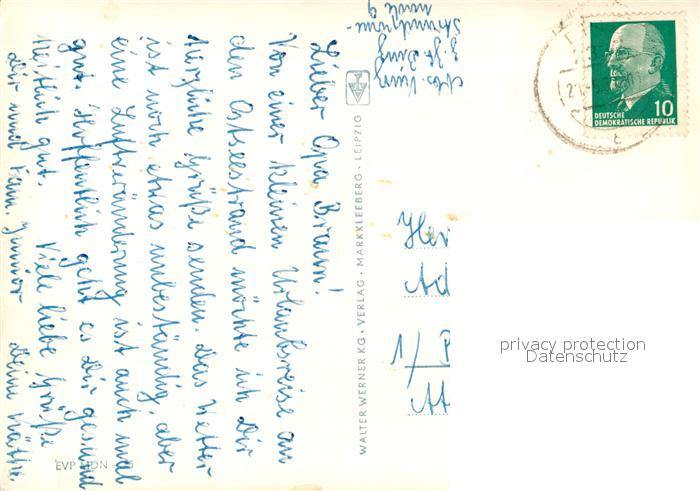 Lieber Opa Braun!
Von einer kleinen Urlaubsreise an
den Ostseestrand möchte ich Dir
herzliche Grüße senden. Das Wetter
ist noch etwas unbeständig, aber
eine Luftveränderung ist auch mal
gut. Hoffentlich geht es Dir gesund
heitlich gut. Viele liebe Grüße
Dir und Fam. Junior Deine Käthe
EVP MDN
WALTER WERNER KG · VERLAG · MARKKLEEBERG · LEIPZIG
10
DEUTSCHE
DEMOKRATISCHE REPUBLIK
1/ P
privacy protection
Datenschutz